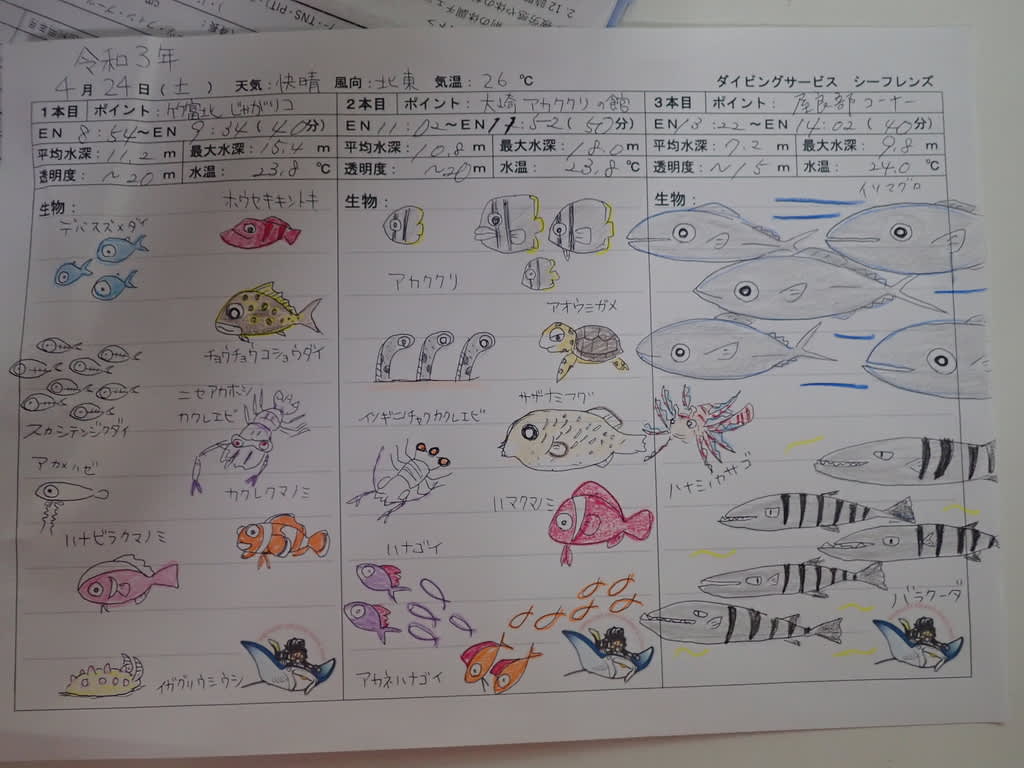 令和3年
4月24日(土) 天気:快晴 風向:北東 気温:26℃ ダイビングサービス シーフレンズ
1本目 ポイント:竹富北 じゃがツコ
EN 8:54~EN 9:34(40分)
平均水深:11.2m 最大水深:15.4m
透明度:~20m 水温:23.8℃
生物:
ホウセキキントキ
デバスズメダイ
チョウチョウコショウダイ
ニセアカホシ
カクレエビ
スカシテンジクダイ
アカメハゼ
カクレクマノミ
ハナビラクマノミ
イガグリウミウシ
2本目 ポイント:大崎 アカククリの館
EN 11:02~EN 11:52(50分)
平均水深:10.8m 最大水深:18.0m
透明度:~20m 水温:23.8℃
生物:
アカククリ
アオウミガメ
サザナミフグ
イソギンチャクカクレエビ
ハマクマノミ
ハナゴイ
アカネハナゴイ
3本目 ポイント:屋良部コーナー
EN 13:22~EN 14:02(40分)
平均水深:7.2m 最大水深:9.8m
透明度:~15m 水温:24.0℃
生物:
イソマグロ
ハナミノカサゴ
バラクーダ